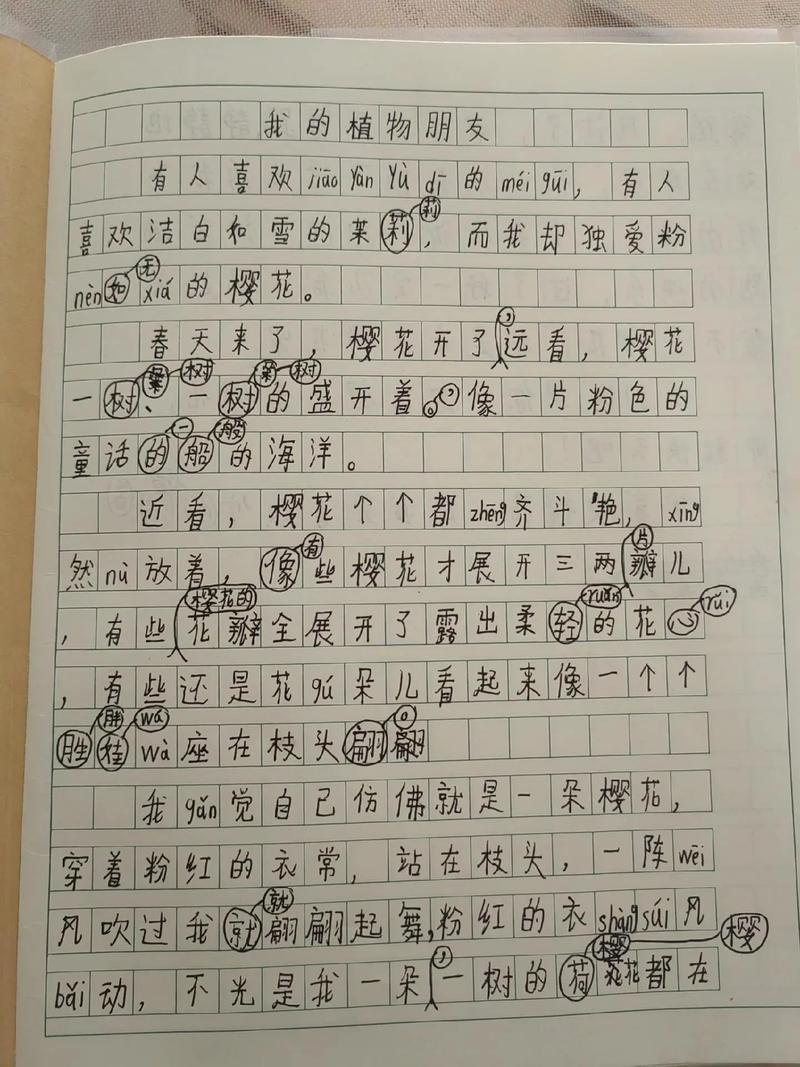 我的植物朋友
有人喜欢jiāo yàn yù dī的méi gūi，有人
莉
喜欢洁白如雪的茉莉，而我却独爱粉
无
nèn如xiá的樱花。
，
春天来了，樱花开了远看，樱花
树 树
一树、一树的盛开着。，像一片粉色的
一 般
童话的船的海洋。
近看，樱花个个都zhēng齐斗艳，xīng
有 片
然nù放着，像些樱花才展开三两瓣儿
樱花的 ruǎn
，有些花瓣全展开了露出柔轻的花心 rúi
，有些还是花gú朵儿看起来像一个个
胖 wá 。
胜娃wà座在枝头翩翩
我gǎn觉自己仿佛就是一朵樱花，
穿着粉红的衣常，站在枝头，一阵wēi
就
风吹过我就翩翩起舞，粉红的衣shàng súi风
， 樱 樱
bǎi动，不光是我一朵一树的荷花都在